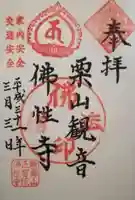 奉拝
栗山観音
佛性寺
平成三十一年
三月三日
家内安全
交通安全